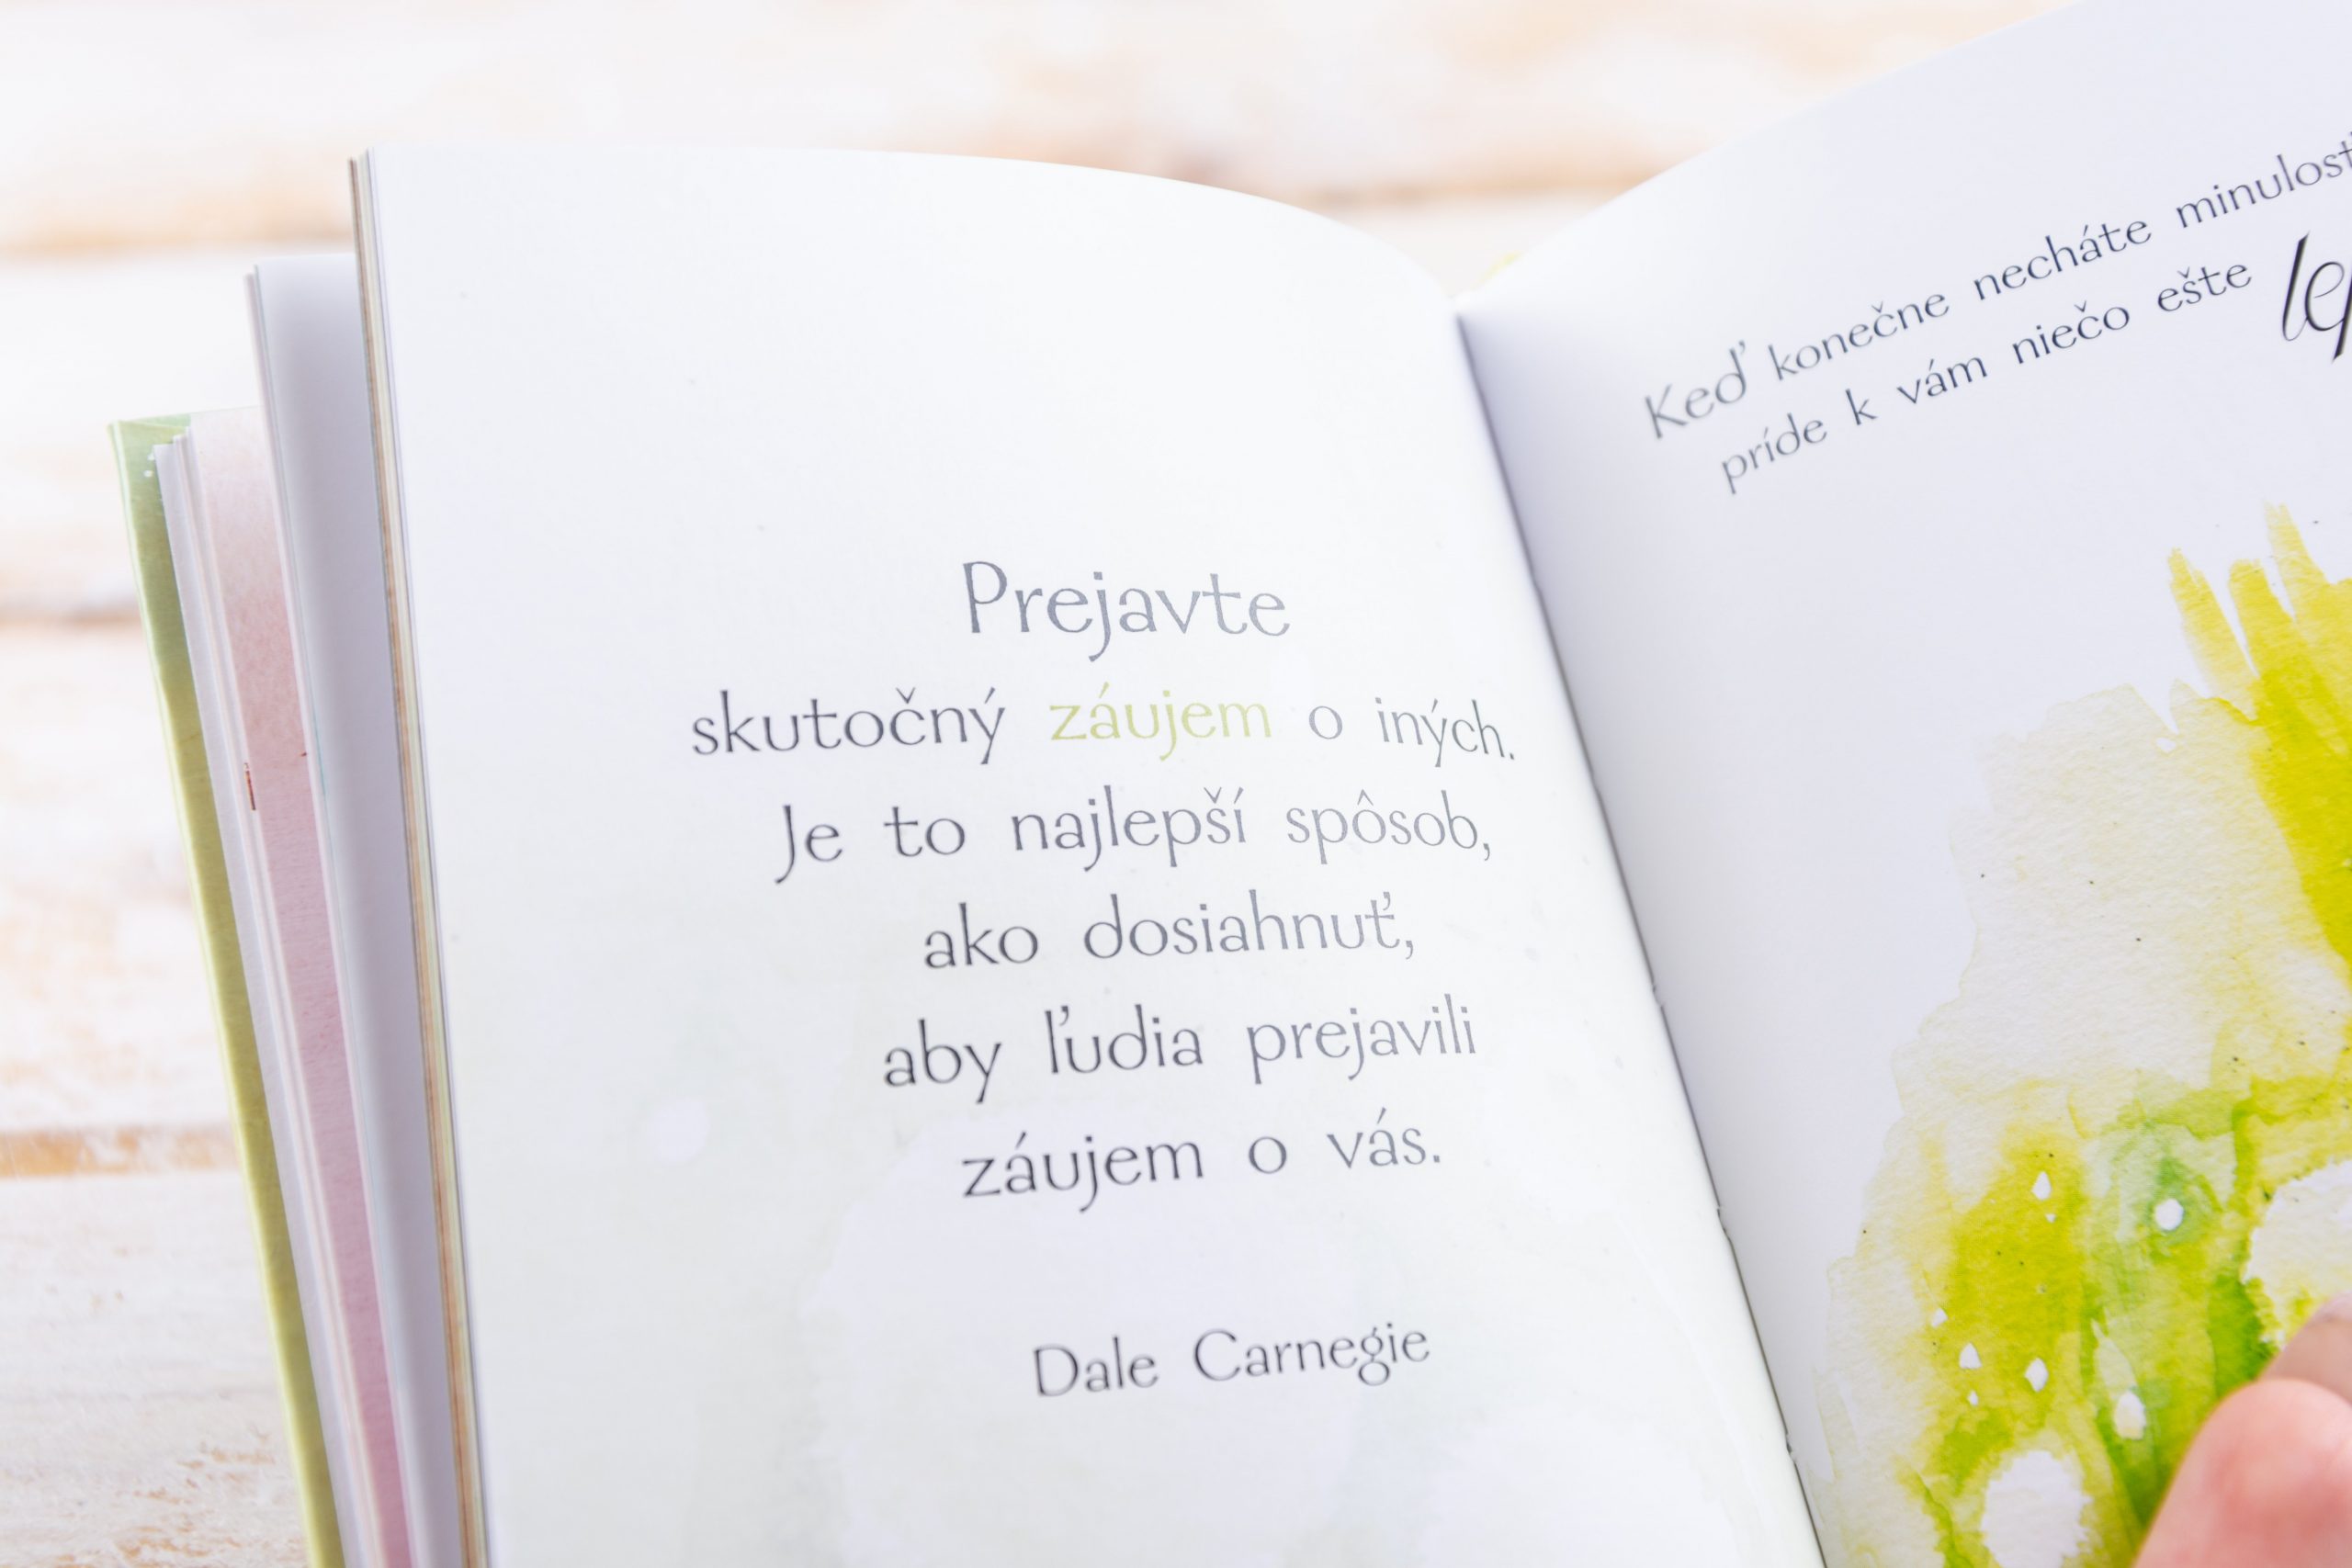 Prejavte
skutočný záujem o iných.
Je to najlepší spôsob,
ako dosiahnuť,
aby ľudia prejavili
záujem o vás.
Dale Carnegie
Keď konečne necháte
príde k vám niečo ešte